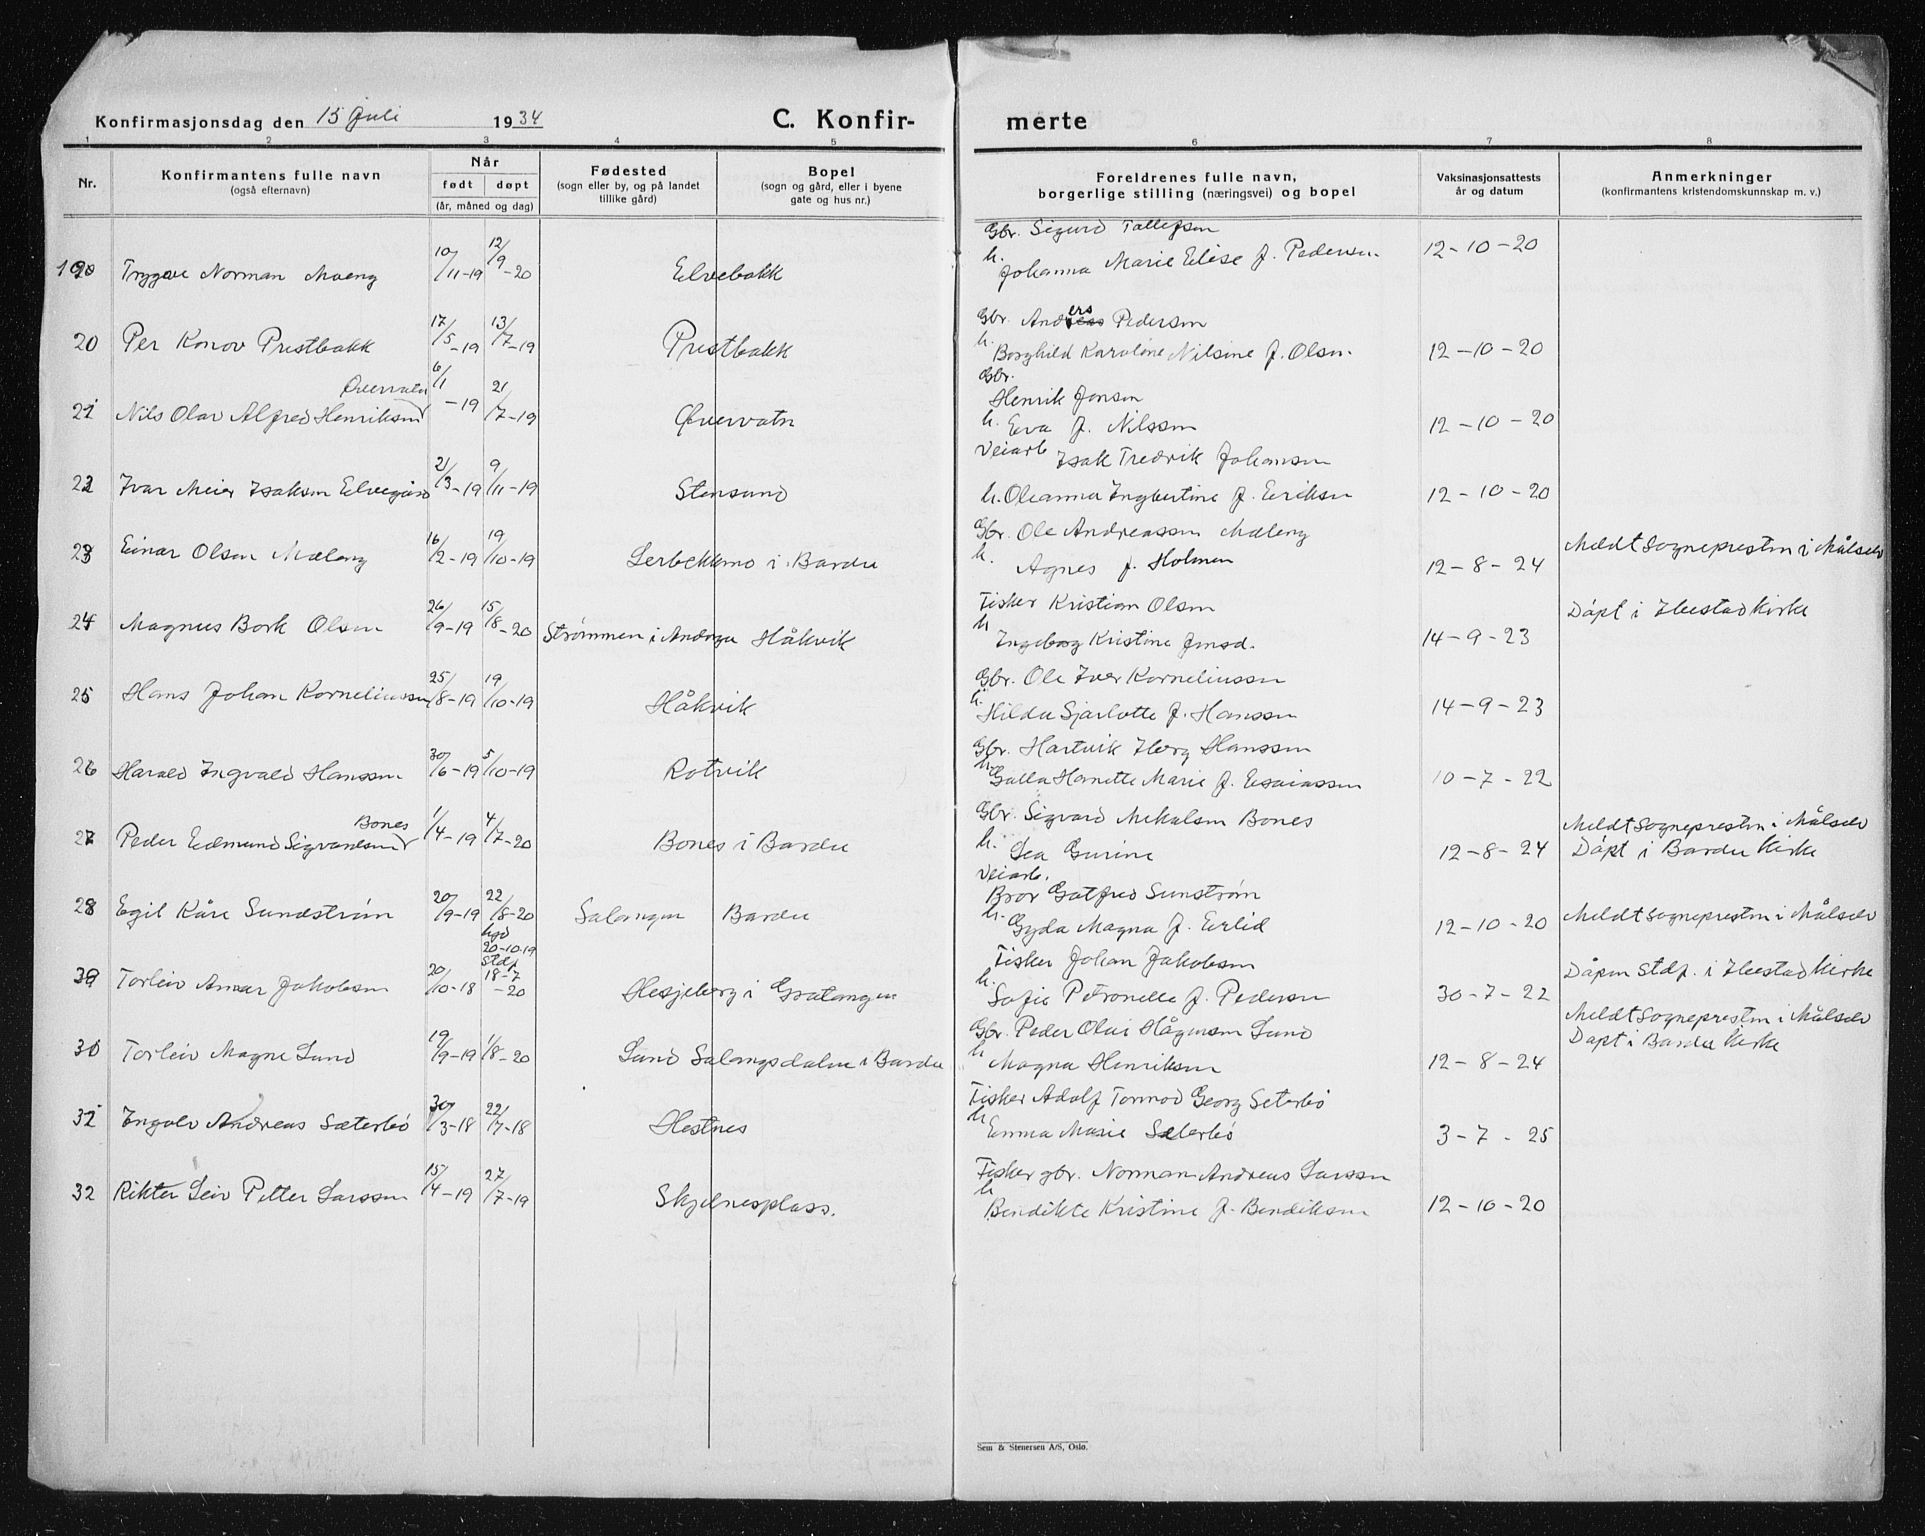 Konfirmasjonsdag den 15 Juli 1934 C. Konfir- merte
1 2 3 4 5 6 7 8
Nr. Konfirmantens fulle navn (også efternavn) Når født døpt (år, måned og dag) Fødested (sogn eller by, og på landet tillike gård) Bopel (sogn og gård, eller i byene gate og hus nr.) Foreldrenes fulle navn, borgerlige stilling (næringsvei) og bopel Vaksinasjonsattests år og datum Anmerkninger (konfirmantens kristendomskunnskap m. v.)
Gbr. Sigurd Tollefsen
Trygve Norman Moeng 10/11-19 12/9-20 Elvebakk h. Johanna Marie Elise f. Pedersen. 12-10-20
Gbr. Anders Pedersen
20 Per Konov Prestbakk 17/5-19 13/7-19 Prestbakk h. Borghild Karoline Nilsine f. Olsen. 12-10-20
Øvervatn Gbr. Henrik Jonsen
21 Nils Olav Alfred Henriksen 6/1-19 21/7-19 Øvervatn h. Eva f. Nilssen 12-10-20
Veiarb Isak Fredrik Johansen
22 Ivar Meier Isaksen Elvegård 21/3-19 9/11-19 Stensund h. Oleanna Ingbertine f. Eriksen 12-10-20
Gbr. Ole Andreassen Mæleng
23 Einar Olsen Mæleng 16/2-19 19/10-19 Lerbekkmo i Bardu h. Agnes f. Holmen 12-8-24 Meldt Sognepresten i Målselv
Fisker Kristian Olsen
24 Magnus Bork Olsen 26/9-19 15/8-20 Strømmen i Andørja Håkvik h Ingeborg Kristine Jensd. 14-9-23 Døpt i Ibestad kirke
Gbr. Ole Iver Korneliussen
25 Hans Johan Korneliussen 25/8-19 19/10-19 Håkvik h. Hilda Sjarlotte f. Hanssen 14-9-23
Gbr. Hartvik Iberg Hanssen
26 Harald Ingvald Hanssen 30/6-19 5/10-19 Rotvik h. Galla Hanette Marie f. Esaiassen 10-7-22
Bones Gbr. Sigvard Mikalsen Bones Meldt Sognepresten i Målselv
27 Peder Edmund Sigvardsen 1/4-19 4/7-20 Bones i Bardu h. Lea Gurine 12-8-24 Døpt i Bardu Kirke
Veiarb. Bror Gotfred Sunstrøm
28 Egil Kåre Sundstrøm 20/9-19 22/8-20 Salangen Bardu h. Gyda Magna f. Erlid 12-10-20 Meldt Sognepresten i Målselv
hjd 20-10-19 Fisker Johan Jakobsen
Torleiv Anear Jakobsen 20/10-18 Stdf. 18-7-20 Hesjeberg i Gratangen h. Sofie Petronelle f. Pedersen 30-7-22 Dåpen Stdf. i Ibestad Kirke
Gbr. Peder Olai Hågensen Lund Meldt Sognepresten i Målselv
30 Torleiv Magne Lund 19/9-19 1/8-20 Lund Salangsdalen i Bardu h Magna Henriksen 12-8-24 Døpt i Bardu Kirke
Fisker Adolf Tormod Georg Seterbø
Ingolv Andreas Sæterbø 30/3-18 22/7-18 Hestnes h Emma Marie Sæterbø 3-7-25
Fisker gbr. Norman Andreas Larssen
32 Rikter Leiv Petter Larssen 15/4-19 27/7-19 Skjelnesplass. h Bendikte Kristine f. Bendiksen 12-10-20
Sem & Stenersen A/S, Oslo.